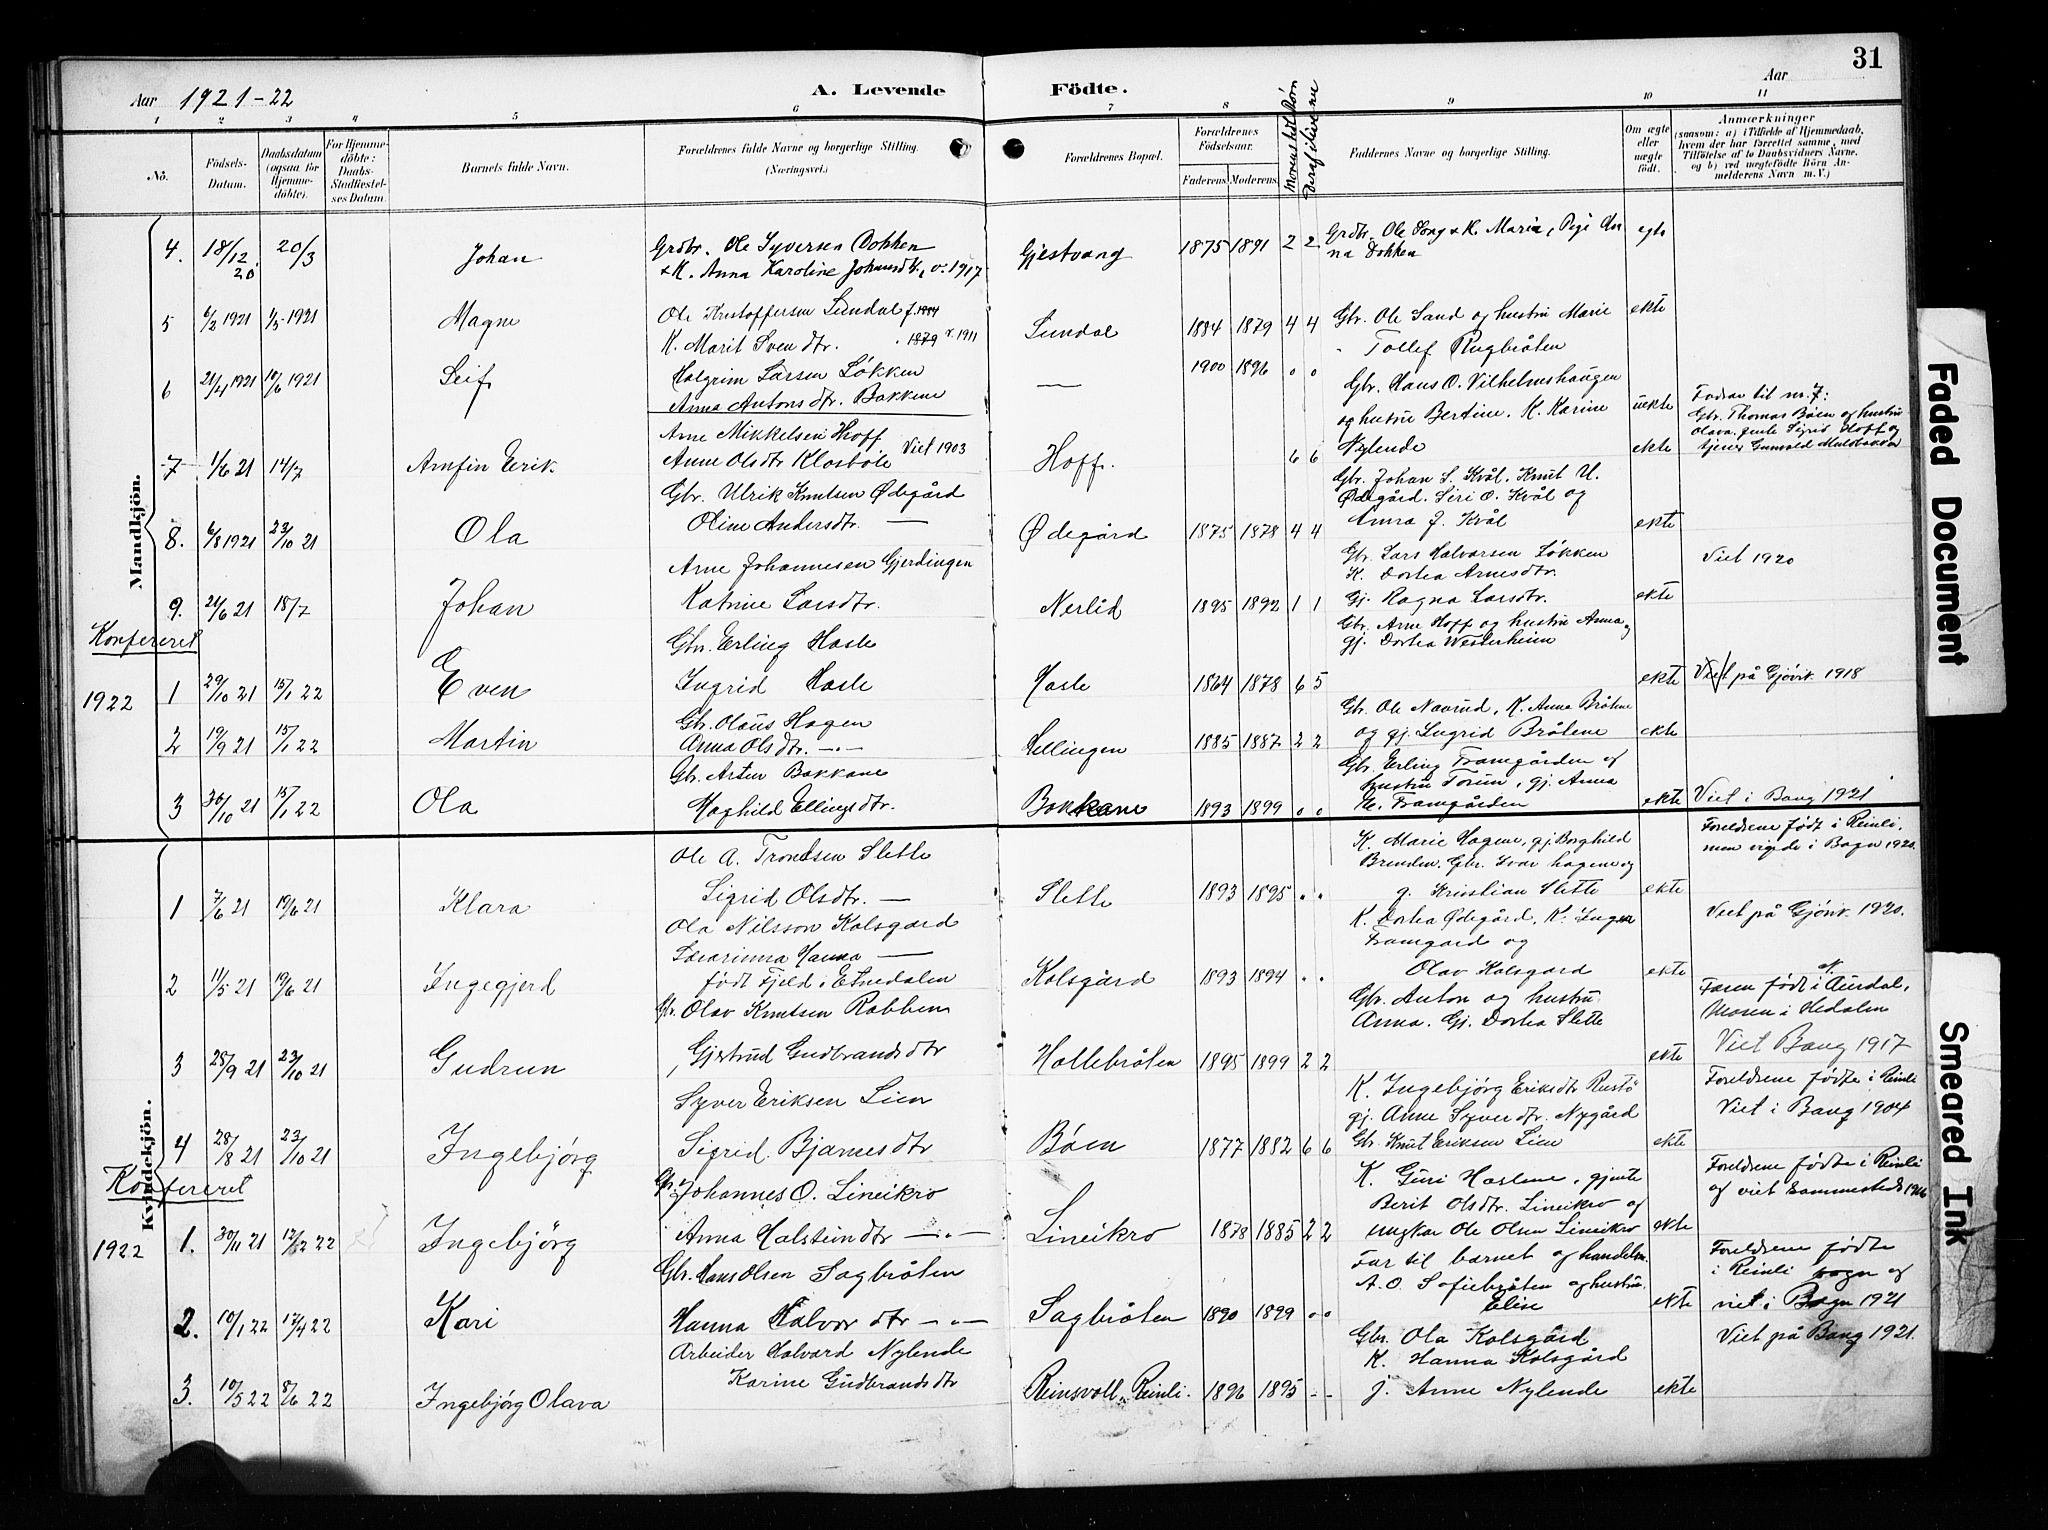 31
Aar 1921-22 A. Levende Födte. Aar
1 2 3 4 5 6 7 8 9 10 11
No. Födsels-Datum. Daabsdatum (ogsaa for Hjemmedöbte). For Hjemmedöbte: Daabs-Stadfæstelses Datum. Barnets fulde Navn. Forældrenes fulde Navne og borgerlige Stilling. (Næringsvei.) Forældrenes Bopæl. Forældrenes Födselsaar. Faderens. Moderens. Faddernes Navne og borgerlige Stilling. Om ægte eller uægte födt. Anmærkninger
(saasom: a) i Tilfælde af Hjemmedaab, hvem der har forrettet samme, med Tilföielse af to Daabsvidners Navne, og b) ved uægtefödte Börn Anmelderens Navn m.V.)
Mandkjön.
4. 18/12 20 20/3 Johan Grdbr. Ole Syversen Dokken
& K. Anna Karoline Johansdtr., v. 1917 Gjestvang 1875 1891 2 2 Grdbr. Ole & K. Maria, Pige Anna Dokken egte
5 6/2 1921 1/5-1921 Magne Ole Kristoffersen Sundal f. 1884
K. Marit Svendtr. 1879 v. 1911 Sundal 1884 1879 4 4 Gbr. Ole Sand og hustru Marie
Tollef Rugbråten ekte
6 21/4 1921 10/6 1921 Leif Halgrim Larsen Løkken
Anna Antonsdtr. Bakkene — 1900 1896 0 0 Gbr. Hans O. Vilhelmshaugen
og hustru Bertine. K. Karine
Nylende uekte
7 1/6 21 14/7 Arnfin Erik Arne Mikkelsen Hoff
Anne Olsdtr Klosbøle Viet 1903 Hoff. 6 6 ekte Fadrar til nr. 7:
Gbr. Thomas Bøen og hustru
Olava, gente Sigrid Hoff og
tjener Gunvald
8. 6/8 1921 23/10 21 Ola Gbr. Ulrik Knutsen Ødegård
Oline Andersdtr. — Ødegård 1875 1878 4 4 Gbr. Johan S. Kvål, Knut U.
Ødegård. Siri O. Kvål og
Anna J. Kvål ekte
9. 21/6 21 18/7 Johan Arne Johannesen Gjerdingen
Katrine Larsdtr. Nerlid 1895 1892 1 1 Gbr. Lars Halvorsen Løkken
K. Dorthea Arnesdtr.
Gj. Ragna Larsdtr. ekte Viet 1920
Konfereret
1922
1 29/10 21 15/1 22 Even Gbr. Erling Hasle
Ingrid Hasle Hasle 1864 1878 6 5 Gbr. Arne Hoff og hustru Anna og
gj. Dorthea Westerheim ekte Viet på Gjøvik 1918
2 19/9 21 15/1 22 Martin Gbr. Olaus Hagen
Anna Olsdtr. —"— Hellingen 1885 1887 2 2 Gbr. Ole Navrud, K. Anna Bråtene
og gj. Ingrid Bråtene ekte
3 30/10 21 15/1 22 Ola Gbr. Arten Bakkane
Maghild Ellingsdtr. Bakkane 1893 1899 0 0 Gbr. Erling Framgården og
hustru Torun, gj. Anna
H. Framgården ekte Viet i Bang 1921
Kvindekjön.
1 7/6 21 19/6 21 Klara Ole A. Trondsen Slette
Sigrid Olsdtr. — Slette 1893 1895 K. Marie Hagene, gj. Borghild
Brenden. Gbr. Ivar Hagene og
g. Kristian Slette ekte Foreldrene født i Reinli,
men vigde i Bagn 1920.
2 11/5 21 19/6 21 Ingegjerd Ola Nilsson Kolsgard
Hanna —
født Fjeld i Etnedalen Kolsgård 1893 1894 K. Dorthea Ødegård, K. Inger
Framgard og
Olav Kolsgard ekte Viet på Gjøvik. 1920.
3 28/9 21 23/10 21 Gudrun Gbr. Olav Knutsen Rabben
Gjertrud Gudbrandsdtr Hallebråten 1895 1899 2 2 Gbr. Anton og hustru
Anna. Gj. Dorthea Slette ekte Faren født i N. Aurdal,
Moren i Hedalen
Viet Bang 1917
4 28/8 21 23/10 21 Ingebjørg Syver Eriksen Lien
Sigrid Bjarnesdtr Bøen 1877 1882 6 6 K. Ingebjørg Eriksdtr Rustø
gj. Anne Syversdtr. Nygård
Gbr. Knut Eriksen Lien ekte Foreldrene fødte i Reinli
Viet i Bang 1904
Konfereret
1922
1. 30/11 21 12/2 22 Ingebjörg Gbr. Johannes O. Lineikro
Anna Halsteindtr —"— Lineikro 1878 1885 2 2 K. Guri Haslene, gjente
Berit Olsdtr. Lineikro og
ungkar Ole Olsen Lineikro ekte Foreldrene fødte i Reinli
og viet sammesteds
2. 10/1 22 17/4 22 Kari Gbr. Hans Olsen Sagbråten
Hanna Halvordtr —"— Sagbråten 1890 1899 0 0 Far til barnet og handelsm.
A. O. Sofiebråten og hustru
Elise ekte Foreldrene fødte
i Reinli sogn og
viet i Bagn 1921
3. 10/5 22 8/6 22 Ingebjørg Olava Arbeider Halvard Nylende
Karine Gudbrandsdtr Reinsvoll, Reinli. 1896 1895 - - Gbr. Ola Kolsgård
K. Hanna Kolsgård
J. Anne Nylende ekte Viet på Bang 1921.
Faded Document
Smeared Ink